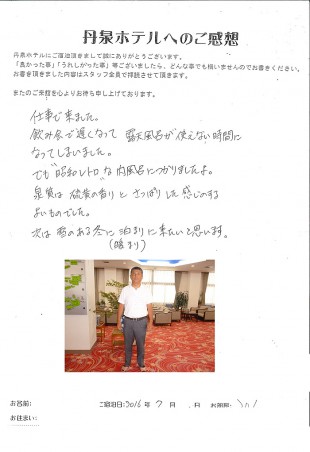 丹泉ホテルへのご感想
丹泉ホテルにご宿泊頂きまして誠にありがとうございます。
「良かった事」「うれしかった事」等ございましたら、どんな事でも構いませんのでお書きください。
お書き頂きました内容はスタッフ全員で拝読させて頂きます。
またのご来館を心よりお待ち申し上げております。
仕事で来ました。
飲み会で遅くなって 露天風呂が使えない時間に
なってしまいました。
でも"昭和レトロ"な内風呂につかりましたよ。
泉質は 硫黄の香りと さっぱりした感じのする
よいものでした。
次は 雪のある冬に 泊まりに来たいと思います。
お名前:
ご宿泊日:2016年 7月 月 お部屋:
お住まい: